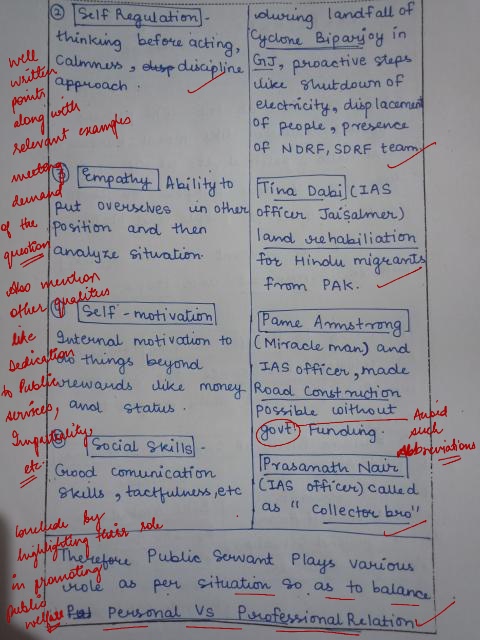 ② Self Regulation -
thinking before acting,
calmness, discipline
approach.
during landfall of
Cyclone Biparjoy in
GJ, proactive steps
like shutdown of
electricity, displacement
of people, presence
of NDRF, SDRF team
③ Empathy Ability to
put overselves in other
position and then
analyze situation.
Tina Dabi (IAS
officer Jaisalmer)
land rehabiliation
for Hindu migrants
from PAK.
④ Self-motivation
Internal motivation to
do things beyond
rewards like money
and status.
Pame Armstrong
(Miracle man) and
IAS officer, made
Road Construction
possible without
govt! Funding.
⑤ Social Skills -
Good comunication
skills, tactfulness, etc
Prasanath Nair
(IAS officer) called
as "collector bro"
Therefore Public Servant Plays various
role as per situation so as to balance
Personal VS Professional Relation
well
written
points
along with
relevant examples
meeting
demand
of the
question
Also mention
other qualities
like
Dedication
to Public
services,
Impartiality,
etc.
Avoid
such
Abbreviations
Conclude by
highlighting their role
in promoting
public
welfare